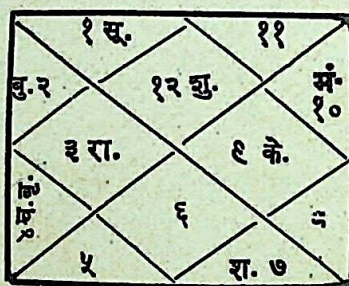 १ सू. ११
बु. २ १२ शु. मं. १०
३ रा. ९ के.
६
५ श. ७